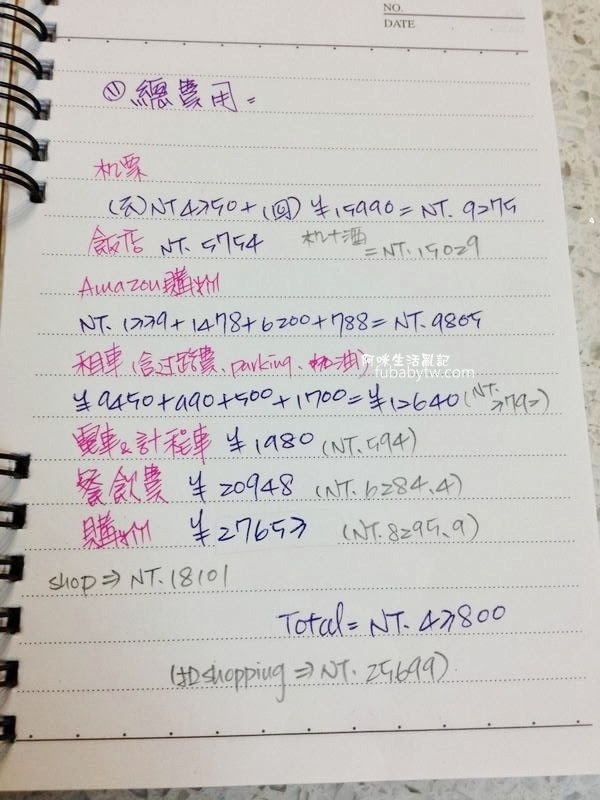 NO.
DATE
⑪ 總費用=
机票
(去)NT4350+(回)¥15990=NT.9275
飯店 NT.5754 机+酒=NT.15029
Amazon購物
NT.1339+1478+6200+788=NT.9805
租車(含过路費、parking、加油)
阿咪生活亂記
fubabytw.com
¥9450+990+500+1700=¥12640(NT.3792)
電車&計程車 ¥1980 (NT.594)
餐飲費 ¥20948 (NT.6284.4)
購物 ¥27653 (NT.8295.9)
shop⇒NT.18101
Total=NT.43800
(扣shopping⇒NT.25699)